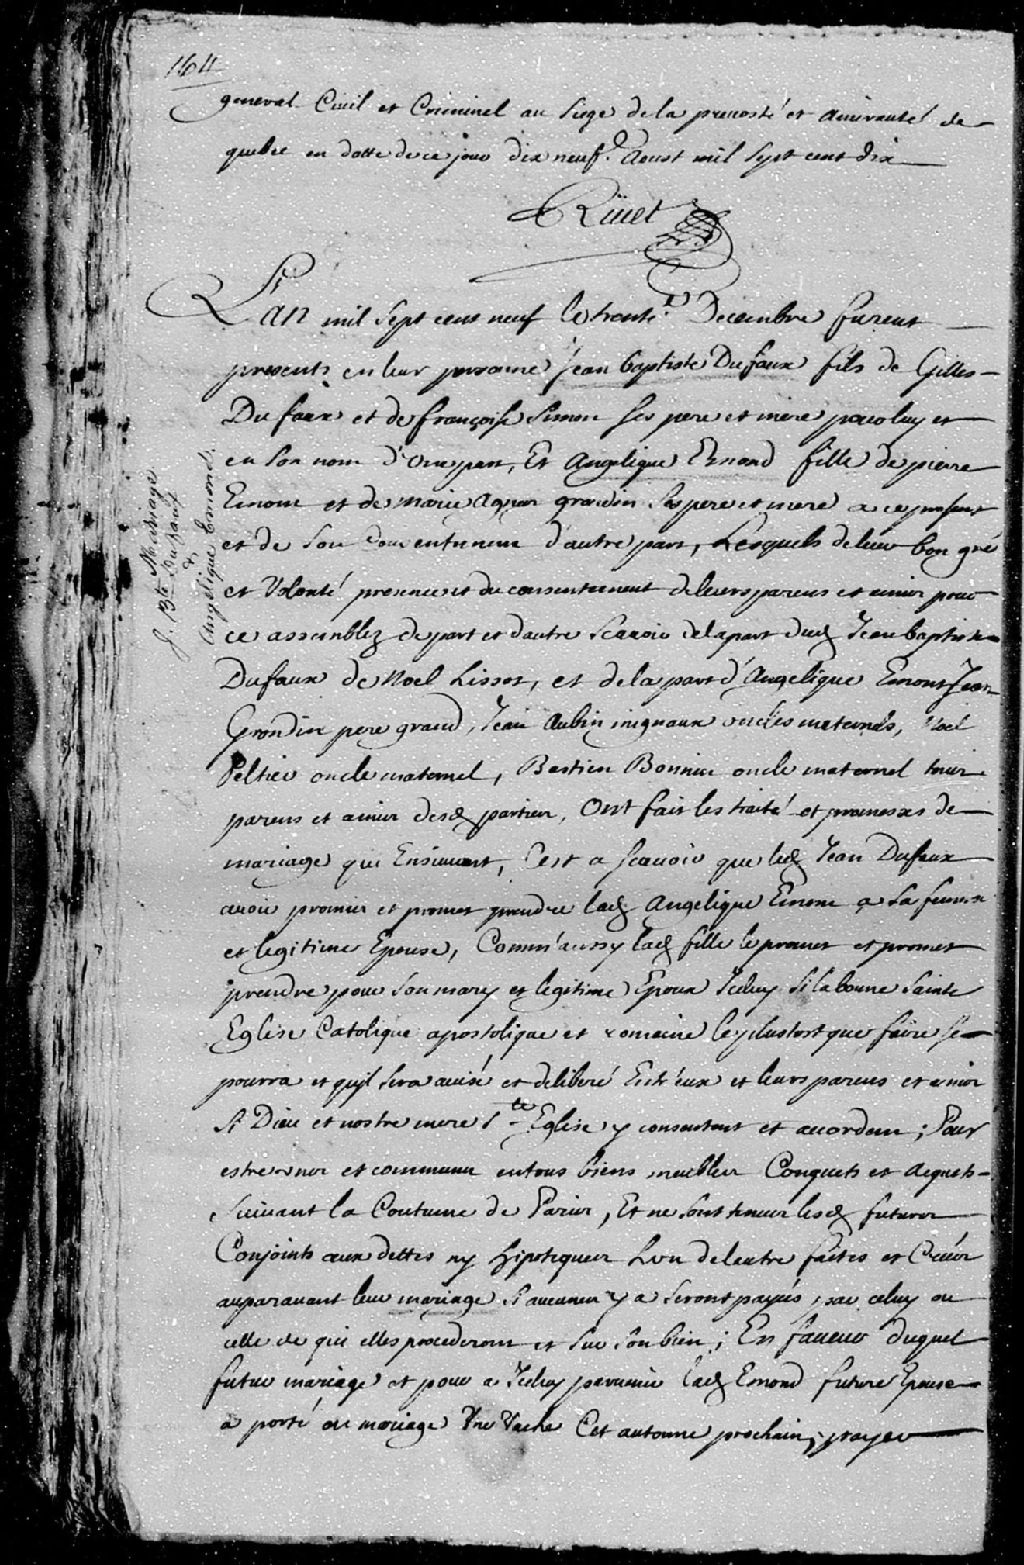 164
general Civil et Criminel au siege de la prevosté et amirauté de
quebec en datte de ce jour dix neuf. Aoust mil sept cent dix
Rüel
L'an mil sept cens neuf le trente.e Decembre furent
presents en leur personne Jean baptiste Dufaux fils de Gilles
Du faux et de françoise Simon ses pere et mere pour luy et
en son nom d'une part, Et Angelique Emond fille de pierre
Emont et de marie Agnes grondin ses pere et mere a ce present
et de son consentement d'autre part, Lesquels de leur bon gré
et Volonté presence et du consentement de leurs parens et amis pour
ce assemblez de part et d'autre scavoir de la part dud Jean baptiste
Dufaux de Noel Lisset, et de la part d'Angelique Emont Jean
Grondin pere grand, Jean Aubin mignaux oncles maternels, Noel
Peltier oncle maternel, Bastien Bonnin oncle maternel tous
parens et amis desd parties, Ont fait les traité et promesses de
mariage qui Ensuivent, C'est a scavoir que led Jean Dufaux
avoir promis et promet prendre lad Angelique Emont a sa femme
et legitime Epouse, Comm'aussy lad fille le promet et promet
prendre pour son mary et legitime Epoux Iceluy si la bonne Sainte
Eglise Catolique apostolique et romaine le plustost que faire se
pourra et qu'jl sera avisé et deliberé Entr'eux et leurs parens et amis
si Dieu et nostre mere s.te Eglise y consentent et accordent; Pour
estre uns et communs en tous biens meubles Conquets et Acquets
suivant la Coutume de Paris, Et ne sont tenus lesd futurs
Conjoints aux dettes ny hipoteques L'un de l'autre faites et Créés
auparavant leur mariage si aucunes y a seront payés par celuy ou
celle de qui elles procederont et sur son bien; En faveur duquel
futur mariage et pour a Iceluy parvenir lad Emond future Epouse
a porté en mariage Une Vache Cet automne prochain, payer
J. Bte Dufaux Mariage
&
Angélique Emond.